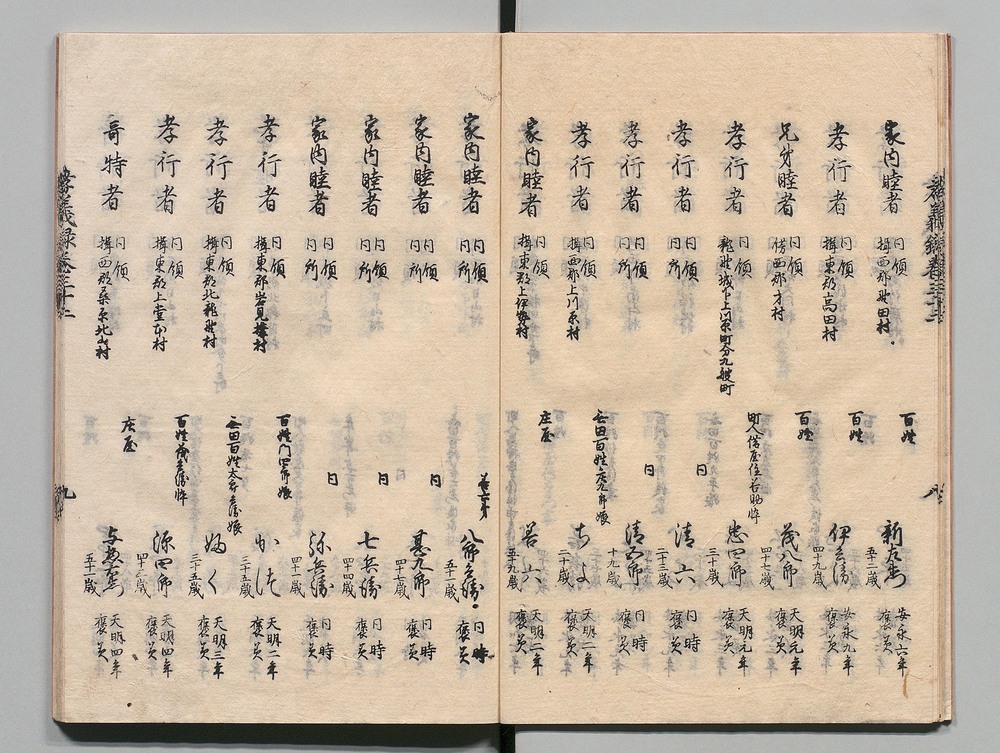 家内睦者 同領 揖西郡野田村 百姓 新左衛門 五十二歳 安永六年 褒美
孝行者 同領 揖東郡高田村 百姓 伊兵衛 四十九歳 安永九年 褒美
兄弟睦者 同領 揖西郡才村 百姓 茂八郎 四十七歳 天明元年 褒美
孝行者 同領 龍野城下上川原町分九艘町 町人借屋住 忠四郎 三十歳 天明元年 褒美
孝行者 同領 同所 同 清六 二十三歳 同時 褒美
孝行者 同領 同所 同 清五郎 十九歳 同時 褒美
孝行者 同領 揖西郡上川原村 無田百姓庄九郎娘 ちよ 二十歳 天明二年 褒美
家内睦者 同領 揖東郡上伊勢村 庄屋 善六 五十九歳 天明二年 褒美
家内睦者 同領 同所 善六弟 八郎兵衛 五十二歳 同時 褒美
家内睦者 同領 同所 同 甚九郎 四十七歳 同時 褒美
家内睦者 同領 同所 同 七兵衛 四十四歳 同時 褒美
家内睦者 同領 同所 同 弥兵衛 四十一歳 同時 褒美
孝行者 同領 揖東郡岩見構村 百姓 娘 三十五歳 天明二年 褒美
孝行者 同領 揖東郡北龍野村 無田百姓太兵衛娘 ふく 三十五歳 天明三年 褒美
孝行者 同領 揖東郡上堂本村 百姓茂兵衛悴 源四郎 四十三歳 天明四年 褒美
奇特者 同領 揖西郡桑原北山村 庄屋 五十一歳 天明四年 褒美
孝義録巻三十二 八
孝義録巻三十二 九